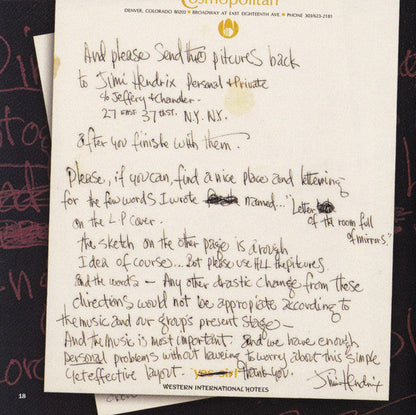 Cosmopolitan
DENVER, COLORADO 80202 • BROADWAY AT EAST EIGHTEENTH AVE. • PHONE 303/623-2181
And please send the pitcures back
to Jimi Hendrix Personal + Private
c/o Jeffery + Chandler.
27 EAST 37th ST. N.Y. N.Y.
after you finishe with them.
Please, if you can, find a nice place and lettering
for the few words I wrote named... "Letter to
of the room full
of mirrors."
on the L P cover.
the sketch on the other page is a rough
Idea of course... But please use ALL the pitcures
and the words - Any other drastic change from these
directions would not be appropiate according to
the music and our group's present stage -
And the music is most important. and we have enough
personal problems without haveing to worry about this simple
yet effective layout. thank you.
Jimi Hendrix
WESTERN INTERNATIONAL HOTELS
18